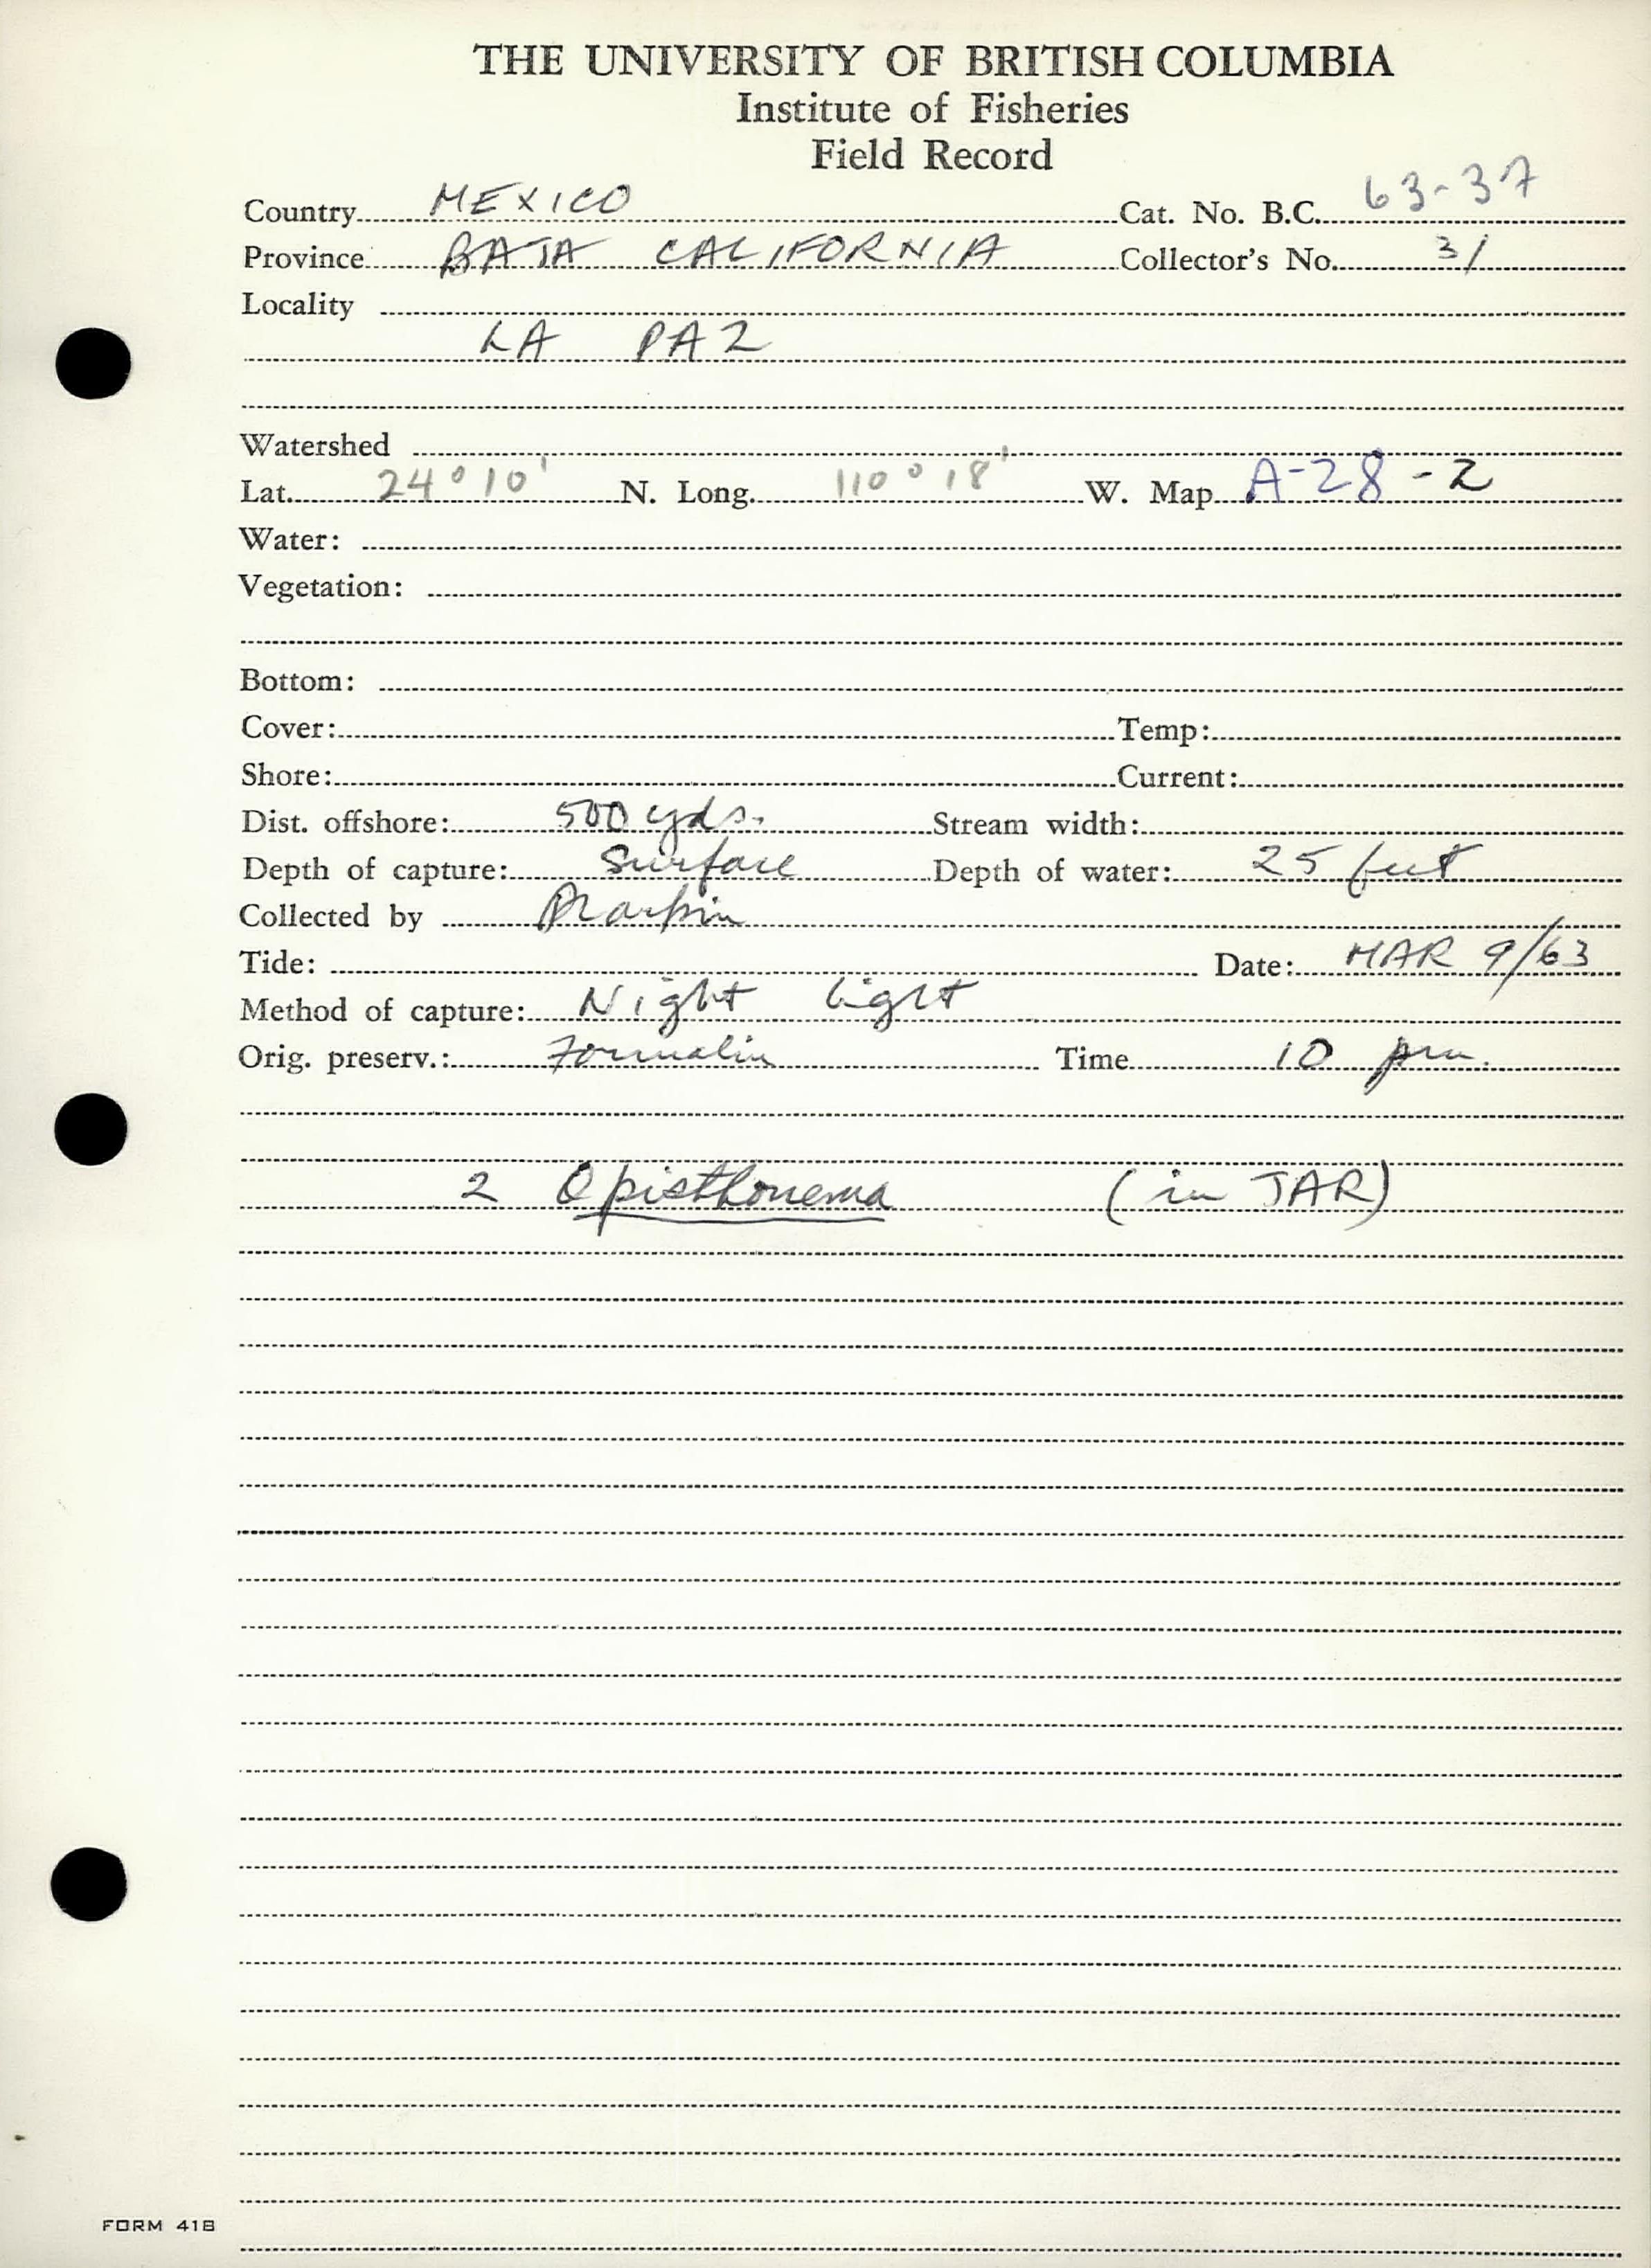 THE UNIVERSITY OF BRITISH COLUMBIA
Institute of Fisheries
Field Record
Country MEXICO Cat. No. B.C. 63-37
Province BAJA CALIFORNIA Collector's No. 31
Locality
LA PAZ
Watershed
Lat. 24° 10' N. Long. 110° 18' W. Map A-28-2
Water:
Vegetation:
Bottom:
Cover: Temp:
Shore: Current:
Dist. offshore: 500 yds. Stream width:
Depth of capture: Surface Depth of water: 25 feet
Collected by
Tide: Date: MAR 9/63
Method of capture: Night light
Orig. preserv.: Formalin Time 10 pm.
2 Opisthonema (in JAR)
FORM 41B